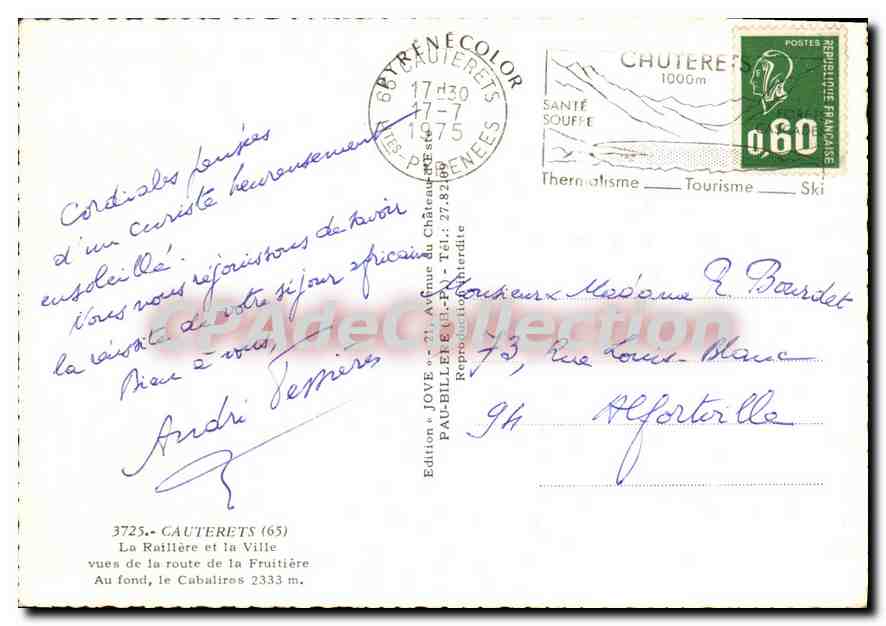 PYRÉNÉCOLOR
65 CAUTERETS
17H30
17-7
1975
HTES-PYRENEES
CAUTERETS
1000m
SANTÉ
SOUFRE
Thermalisme ___ Tourisme ___ Ski
POSTES
RÉPUBLIQUE FRANÇAISE
0,60
Cordiales pensées
d'un curiste heureusement
ensoleillé.
Nous nous réjouissons de savoir
la réussite de votre séjour africain
Bien à vous,
André Tessières
Monsieur & Madame R. Bourdet
73, Rue Louis-Blanc
94 Alfortville
Edition « JOVE » - 21, Avenue du Château-d'Este
PAU-BILLERE (B.-P.) - Tél.: 27.82.60
Reproduction interdite
CPAdeCollection
3725.- CAUTERETS (65)
La Raillère et la Ville
vues de la route de la Fruitière
Au fond, le Cabaliros 2333 m.